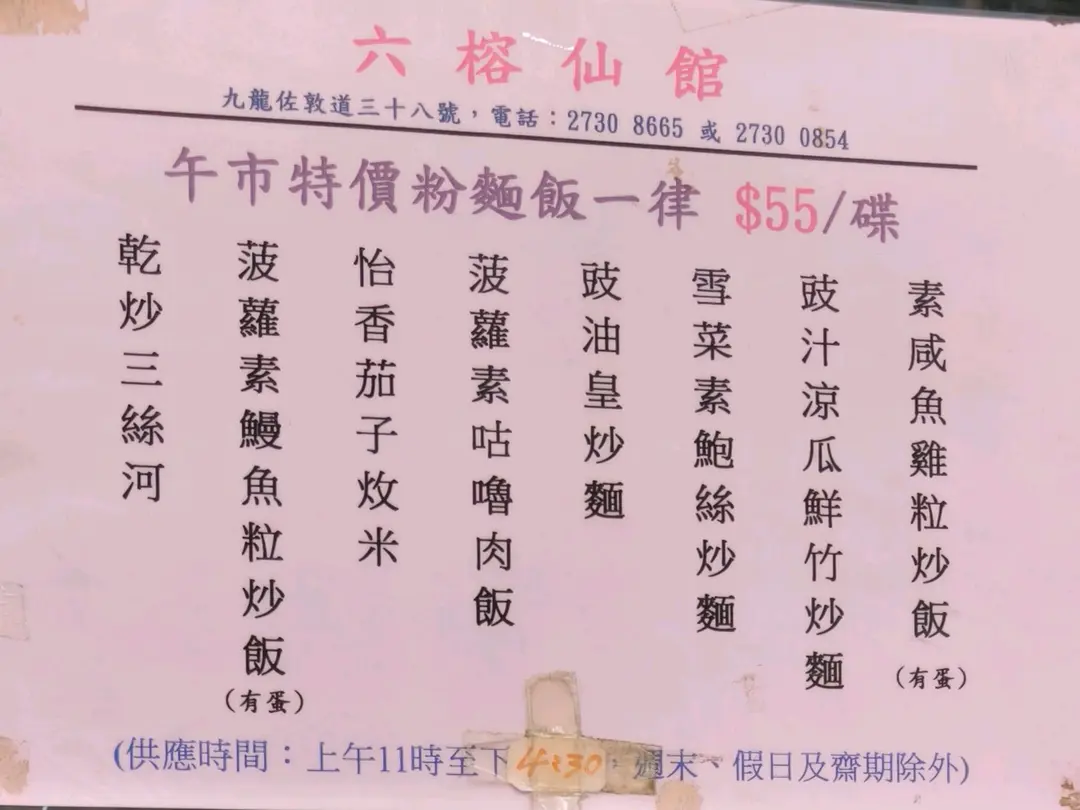 六榕仙館
九龍佐敦道三十八號，電話：2730 8665 或 2730 0854
午市特價粉麵飯一律 $55/碟
素咸魚雞粒炒飯（有蛋）
豉汁涼瓜鮮竹炒麵
雪菜素鮑絲炒麵
豉油皇炒麵
菠蘿素咕嚕肉飯
怡香茄子炆米
菠蘿素鰻魚粒炒飯（有蛋）
乾炒三絲河
(供應時間：上午11時至下4:30，週末、假日及齋期除外)